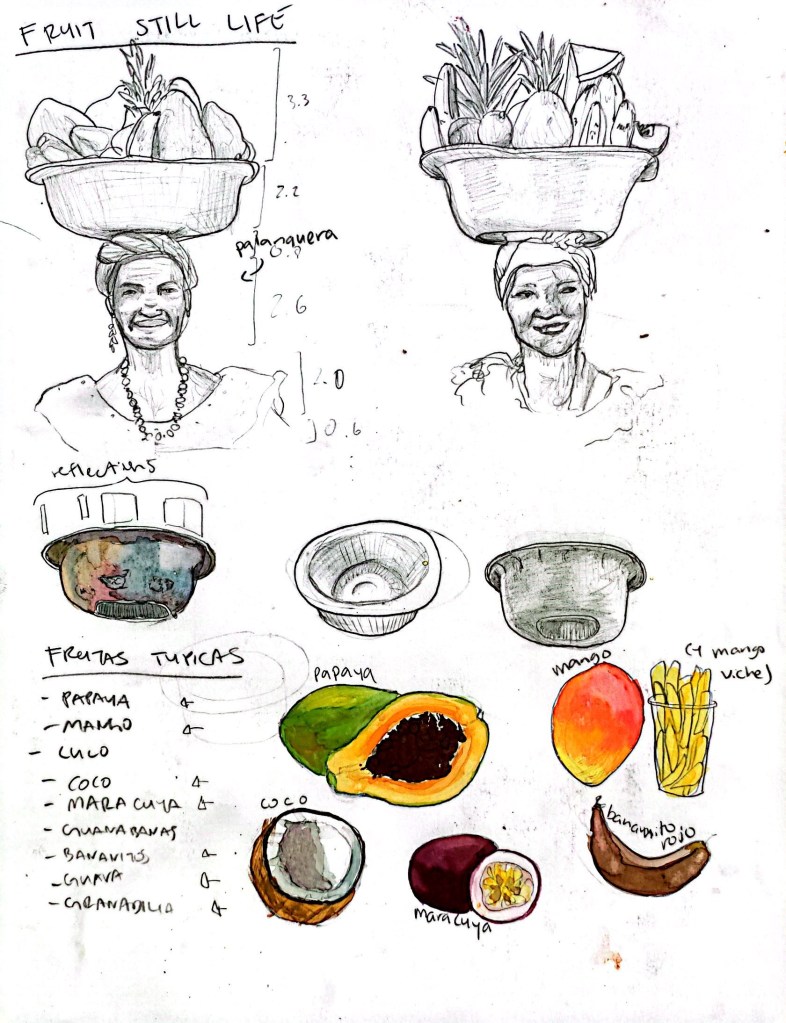 FRUIT STILL LIFE
3.3
2.2
palanquera
0.8
2.6
2.0
0.6
reflections
FRUTAS TYPICAS
- PAPAYA
- MANGO
- LULO
- COCO
- MARACUYA
- GUANABANAS
- BANANITOS
- GUAVA
- GRANADILLA
papaya
mango
(y mango
viche)
coco
maracuya
bananito
rojo